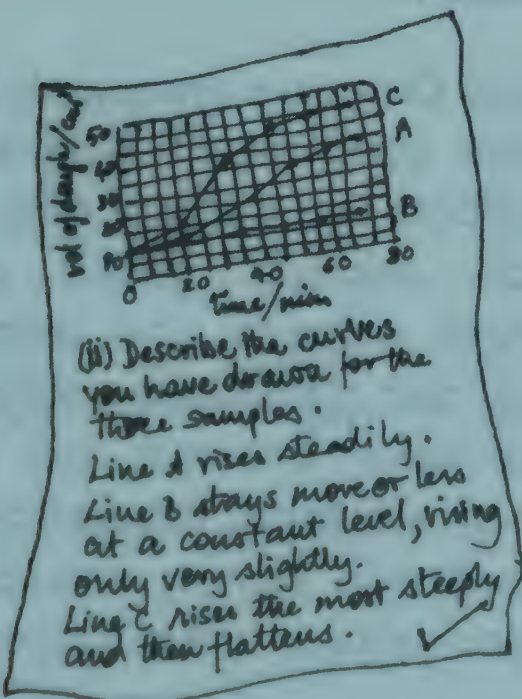 vol of dough/cm³
50
40
30
20
10
0
20
40
60
80
time/min
C
A
B
(ii) Describe the curves
you have drawn for the
three samples.
Line A rises steadily.
Line B stays more or less
at a constant level, rising
only very slightly.
Line C rises the most steeply
and then flattens.